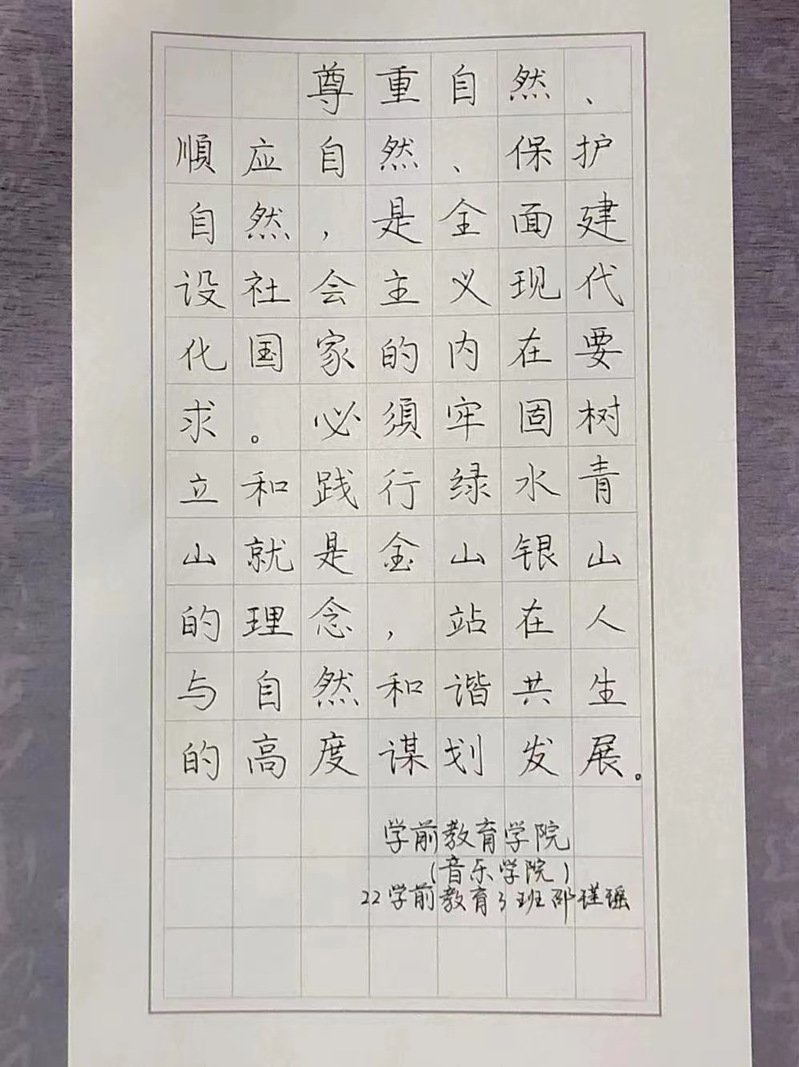 尊重自然、
順应自然、保护
自然，是全面建
设社会主义现代
化国家的内在要
求。必須牢固树
立和践行绿水青
山就是金山银山
的理念，站在人
与自然和谐共生
的高度谋划发展。
学前教育学院
(音乐学院)
22学前教育3班邵瑾瑶